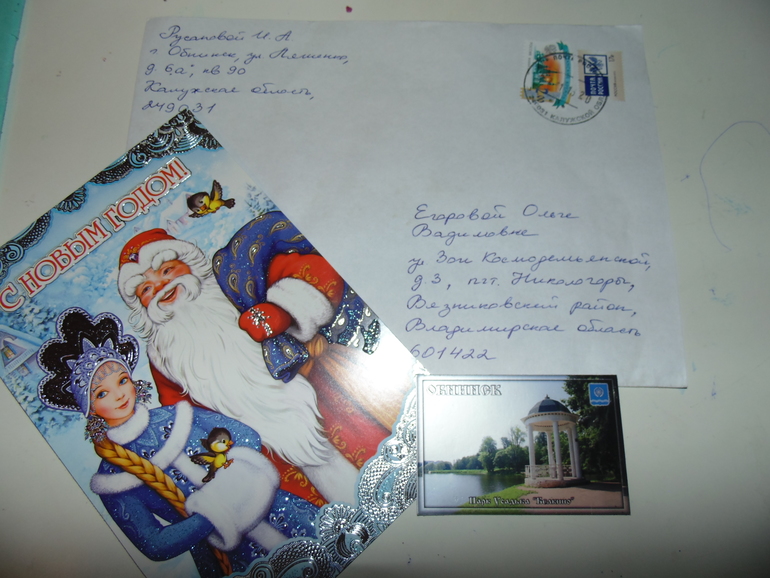 Русановой И. А
г Обнинск, ул Ляшенко,
д 6,а", кв 90
Калужская область,
249031
Егоровой Ольге
Вадимовне
ул Зои Космодемьянской,
д 3, пгт. Никологоры,
Вязниковский район,
Владимирская область
601422
С НОВЫМ ГОДОМ!
ОБНИНСК
Парк Усадьба "Белкино"